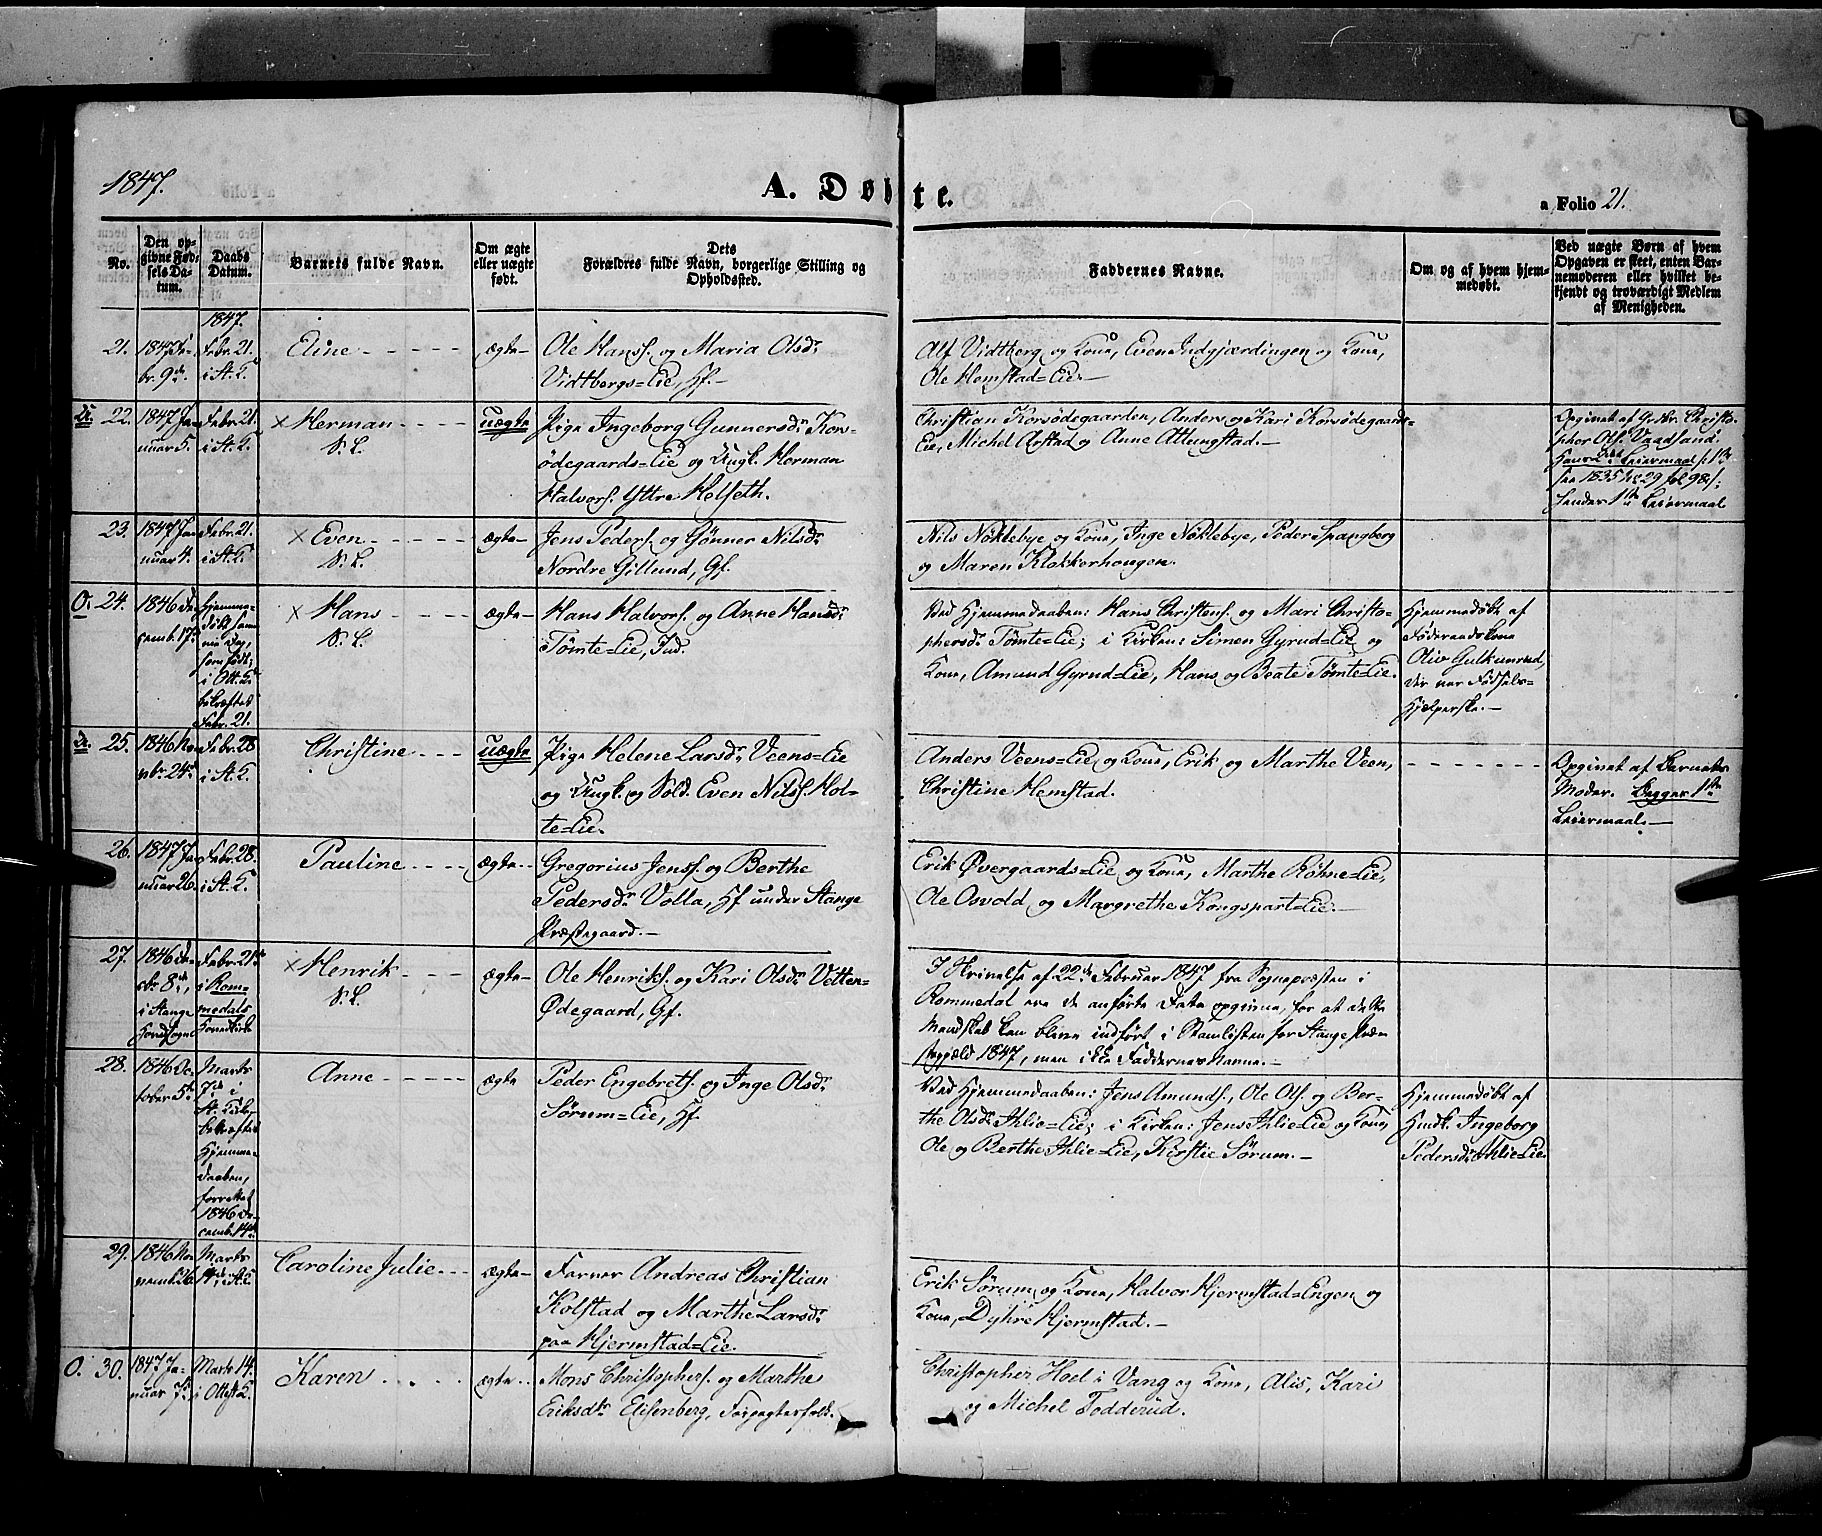 1847.
A. Døbte.
a Folio 21.
No.
Den op-
givne Fød-
sels Da-
tum.
Daabs
Datum.
Barnets fulde Navn.
Om ægte
eller uægte
født.
Dets
Forældres fulde Navn, borgerlige Stilling og
Opholdssted.
Faddernes Navne.
Om og af hvem hjem-
medøbt.
Ved uægte Børn af hvem
Opgaven er skeet, enten Bar-
nemoderen eller hvilket be-
kjendt og troværdigt Medlem
af Menigheden.
1847.
21.
1847 Fe-
br. 9de.
Febr. 21.
i St. K.
Eline
ægte
Ole Hanss. og Maria Olsdr.
Vidtbergs=Eie, Hf.
Alf Vidtberg og Kone, Even Indgjærdingen og Kone,
Ole Hemstad=Eie.
U. 22.
1847 Ja-
nuar 5.
Febr. 21.
i St. K.
× Herman
S. L.
uægte
Pige Ingeborg Gunnersdr. Kors-
ødegaards=Eie og Ungk. Herman
Halvors. Yttre Holseth.
Christian Korsødegaarden, Anders og Kari Korsødegaards=
Eie, Michel Arstad og Anne Attungstad.
Opgivet af Christo-
pher Ols. Vaadsand.
Hans 2det Leiermaal
1835 No. 29 fol. 98
hendes 1ste Leiermaal
23.
1847 Ja-
nuar 4.
Febr. 21.
i St. K.
× Even
S. L.
ægte
Jens Peders. og Gønner Nilsdr.
Nordre Gillund, Gf.
Nils Nøklebye og Kone, Inge Nøklebye, Peder Spangberg
og Maren Klokkerhaugen.
O. 24.
1846 De-
cemb. 17.
Hjemme-
døbt sam-
me Dag,
som født;
i Ott. K.
bekræftet
Febr. 21.
× Hans
S. L.
ægte
Hans Halvors. og Anne Hansdr.
Tømte=Eie, Ind.
Ved Hjemmedaaben: Hans Christens. og Mari Christo-
phersdr. Tømte=Eie; i Kirken: Simen Gyrud=Eie og
Kone, Amund Gyrud=Eie, Hans og Beate Tømte=Eie.
Hjemmedøbt af
Føderaadskone
Oliv Gulkunrud,
der var Fødsels-
hjelperske.
U. 25.
1846 No-
vbr. 24de
Febr. 28
i St. K.
Christine
uægte
Pige Helene Larsdr. Veens=Eie
og Ungk. og Sold. Even Nilss. Hol-
te=Eie.
Anders Veens=Eie og Kone, Erik og Marthe Veen,
Christine Hemstad.
Opgivet af Barnets
Moder. Begges 1ste
Leiermaal.
26.
1847 Ja-
nuar 26.
Febr. 28.
i St. K.
Pauline
ægte
Gregorius Jenss. og Berthe
Pedersdr. Volla, Hf. under Stange
Præstegaard.
Erik Øvergaards=Eie og Kone, Marthe Røhne=Eie,
Ole Osvold og Margrethe Kongspart=Eie.
27.
1846 De-
cbr 8de,
i Stange
Hovedsogn
Febr. 21de
i Rom-
medals
Hovedkirke
× Henrik
S. L.
ægte
Ole Henriks. og Kari Olsdr. Vetten-
Ødegaard, Gf.
I Skrivelse af 22de Februar 1847 fra Sognepræsten i
Rommedal ere de anførte Data opgivne, for at dette
Mandskab kan blive indført i Stamlisten for Stange Præ-
stegjæld 1847, men ikke Faddernes Navne.
28.
1846 Oc-
tober 5te
Marts
7de i
St. Kirke
bekræftet
Hjemme-
daaben,
forrettet
1846 De-
cemb. 14de
Anne
ægte
Peder Engebrets. og Inge Olsdr.
Sørum=Eie, Hf.
Ved Hjemmedaaben: Jens Amunds., Ole Ols. og Ber-
the Olsdr. Ihlie=Eie; i Kirken: Jens Ihlie=Eie og Kone,
Ole og Berthe Ihlie=Eie, Kirstie Sørum.
Hjemmedøbt af
Husk. Ingeborg
Pedersdr. Ihlie=Eie.
29.
1846 No-
vemb. 26.
Marts
i St. K.
Caroline Julie
ægte
Farver Andreas Christian
Kolstad og Marthe Larsdr.
paa Hjermstad=Eie.
Erik Sørum og Kone, Halvor Hjermstad=Engen og
Kone, Dyhre Hjermstad.
O. 30.
1847 Ja-
nuar 7de
Marts 14.
i Ottest. K.
Karen
ægte
Mons Christophers. og Marthe
Eriksdr. Elisenberg, Forpagterfolk.
Christopher Hoel i Vang og Kone, Alis, Kari
og Michel Todderud.